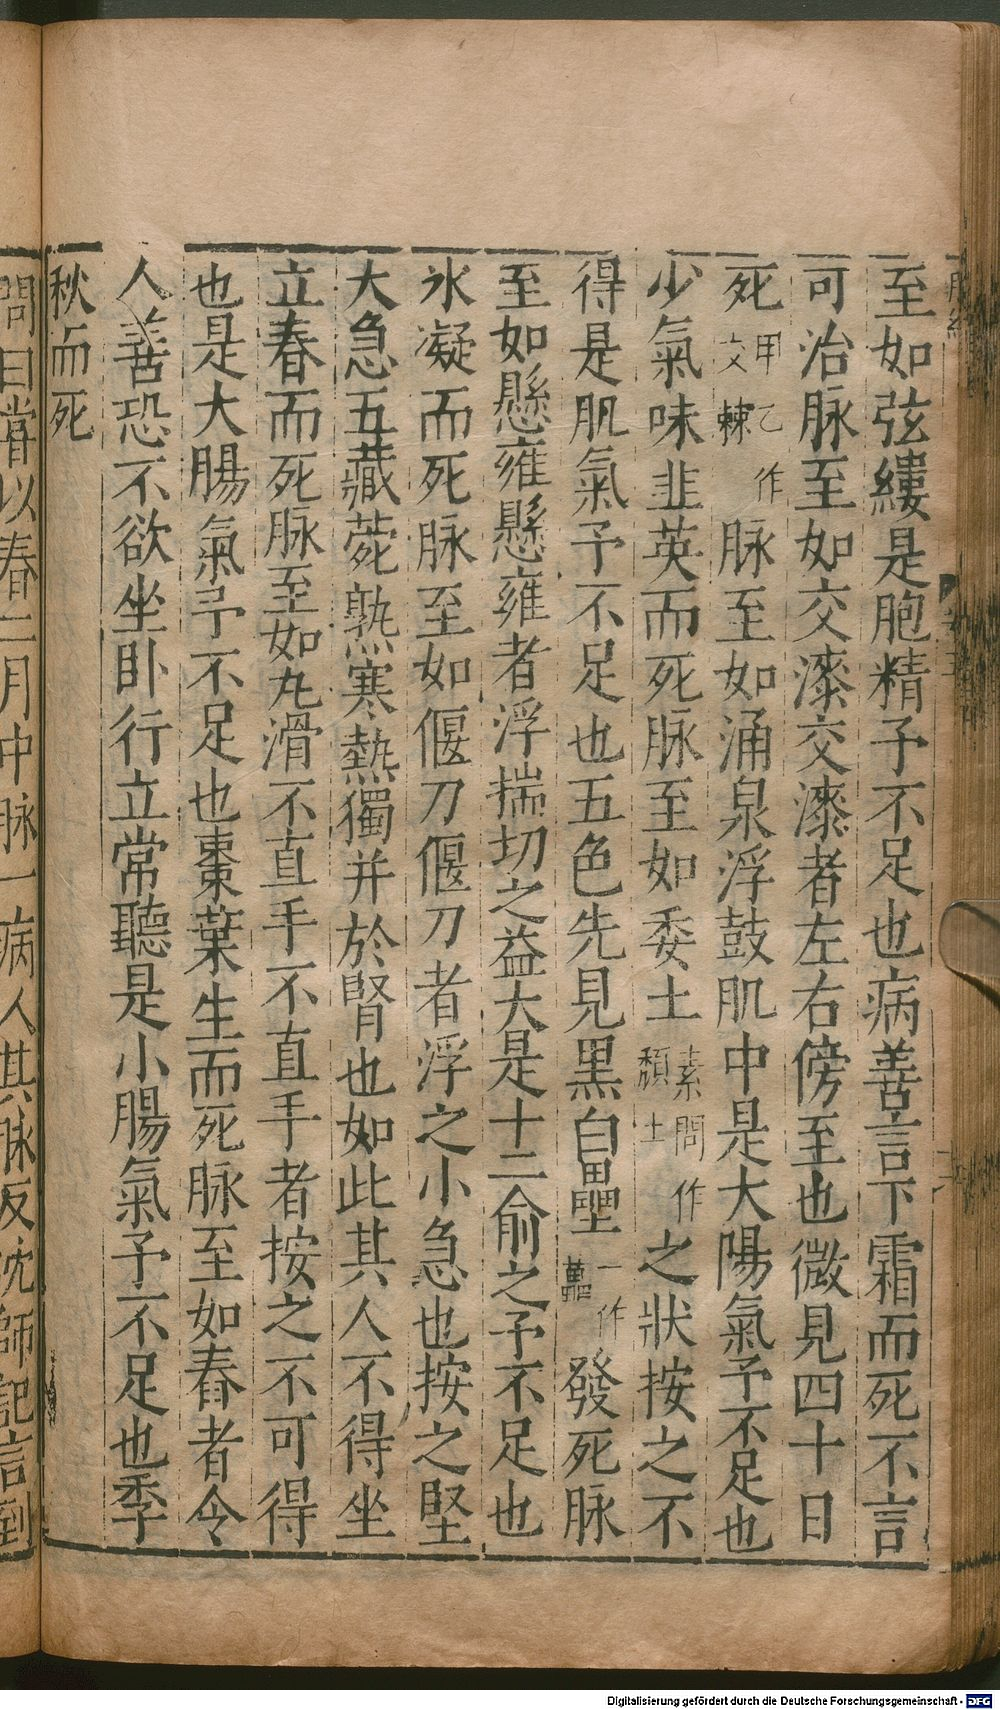 至如弦縷是胞精予不足也病善言下霜而死不言
可治脉至如交漆交漆者左右傍至也微見四十日
死甲乙作交棘脉至如涌泉浮鼓肌中是大陽氣予不足也
少氣味韭英而死脉至如委土素問作頹土之狀按之不
得是肌氣予不足也五色先見黑白壘一作藟發死脉
至如懸雍懸雍者浮揣切之益大是十二俞之予不足也
氷凝而死脉至如偃刀偃刀者浮之小急也按之堅
大急五藏菀熟寒熱獨并於腎也如此其人不得坐
立春而死脉至如丸滑不直手不直手者按之不可得
也是大腸氣予不足也棗葉生而死脉至如舂者令
人善恐不欲坐卧行立常聽是小腸氣予不足也季
秋而死
問曰嘗以春二月中脉一病人其脉反沈師記言到
Digitalisierung gefördert durch die Deutsche Forschungsgemeinschaft - DFG